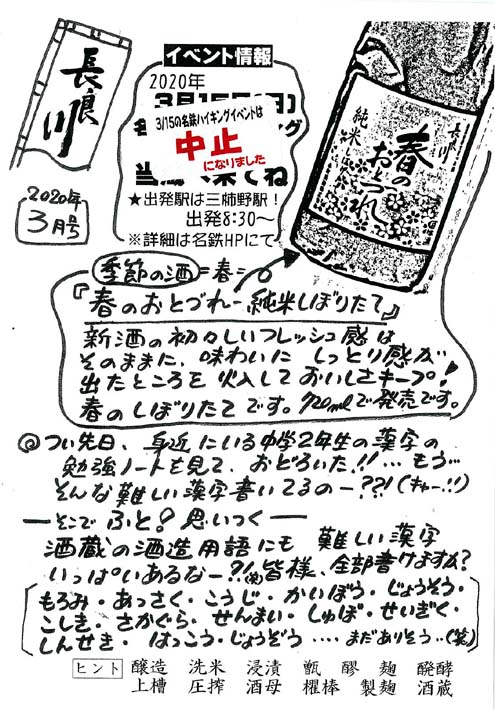 長良川
2020年
3月号
イベント情報
2020年
3/15の名鉄ハイキングイベントは
中止
になりました
★出発駅は三柿野駅!
出発8:30～
※詳細は名鉄HPにて
長良川
純米
春の
おとづれ
季節の酒=春=
『春のおとづれー純米しぼりたて』
新酒の初々しいフレッシュ感は
そのままに、味わいに しっとり感が
出たところを火入しておいしさキープ!
春のしぼりたてです。720mlで発売です。
◎つい先日、身近にいる中学2年生の漢字の
勉強ノートを見て、おどろいた!!…もう…
そんな難しい漢字書いてるのー??!(キャー!!)
—そこで ふと? 思いつく—
酒蔵の酒造用語にも 難しい漢字
いっぱいあるなー?!(笑)皆様、全部書けますか?
もろみ・あっさく・こうじ・かいぼう・じょうそう・
こしき・さかぐら・せんまい・しゅぼ・せいぎく・
しんせき・はっこう・じょうぞう ‥‥まだありそう‥(笑)
ヒント 醸造 洗米 浸漬 甑 醪 麹 醗酵
上槽 圧搾 酒母 櫂棒 製麹 酒蔵